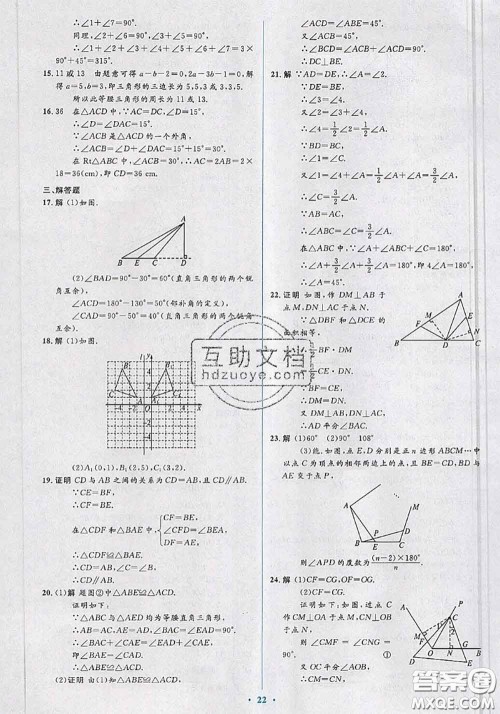 ∴∠1+∠2+∠3=45°.
同理,∠4+∠5+∠6=45°.
∴∠1+∠2+∠3+∠4+∠5+∠6+∠7=2×
90°+45°=315°.
15. 11或13 由题意可得a-b-2=0,2a-3b-1=0.解
得a=5,b=3,即三角形的三边长为5,5,3或3,3,5.
所以此等腰三角形的周长为11或13.
16. 36 在△ACD中,∵AC=CD,∠DAC=15°,
∴∠D=∠DAC=15°.
∵∠ACB是△ACD的一个外角,
∴∠ACB=∠D+∠DAC=15°+15°=30°.
在Rt△ABC中,∠ACB=30°,∴AC=2AB=2×
18=36(cm),即CD=36 cm.
三、解答题
17. 解 (1)如图.
A
B E C D
(2)∠BAD=90°-30°=60°(直角三角形的两个锐
角互余),
∠ACD=180°-130°=50°(邻补角的定义),
∠CAD=90°-50°=40°(直角三角形的两个锐角
互余).
18. 解 (1)如图.
(2)A₁(0,1),B₁(2,5),C₁(3,2).
19. 证明 CD与AB之间的关系为CD=AB,且CD∥AB.
∵CE=BF,
∴CF=BE.
在△CDF和△BAE中, CF=BE, ∠CFD=∠BEA, DF=AE,
∴△CDF≌△BAE.
∴CD=AB,∠C=∠B.
∴CD∥AB.
20. (1)解 题图②中△ABE≌△ACD.
证明如下:
∵△ABC与△AED均为等腰直角三角形,
∴AB=AC,AE=AD,∠BAC=∠EAD=90°.
∴∠BAC+∠CAE=∠EAD+∠CAE,
即∠BAE=∠CAD.
∴△ABE≌△ACD.
(2)证明 由(1)知△ABE≌△ACD,
∴∠ACD=∠ABE=45°.
又∠ACB=45°,
∴∠BCD=∠ACB+∠ACD=90°.
∴DC⊥BE.
21. 解 ∵AD=DE,∴∠A=∠1.
∵DE=BE,
∴∠2=∠3.
又∠A+∠1=∠2+∠3,
∴∠A=∠2.
∵BE=BC,
∴∠4=∠C.
∵AB=AC,
∴∠ABC=∠C=3/2∠A.
∵∠A+∠ABC+∠C=180°,
∴∠A+3/2∠A+3/2∠A=180°,即4∠A=180°,
∴∠A=45°.
22. 证明 如图,作DM⊥AB于
点M,DN⊥AC于点N.
∵△DBF和△DCE的
面积相等,
∵BF=CE,
∴DM=DN.
∴AD平分∠BAC.
23. 解 (1)60° (2)90° 108°
(3)能.如图,点E,D分别是正n边形ABCM⋯中
以点C为顶点的相邻两边上的点,且BE=CD,BD与
AE交于点P,
则∠APD的度数为(n-2)×180°/n.
24. 解 (1)CF=CG,OF=OG.
(2)CF=CG.
证明如下:如图,过点C作
CM⊥OA于点M,CN⊥OB
于点N,
则∠CMF=∠CNG
=90°. ①
又OC平分∠AOB,
∴CM=CN,
互助文档
hdzuoye.com
答案圈
MXQE.COM
22